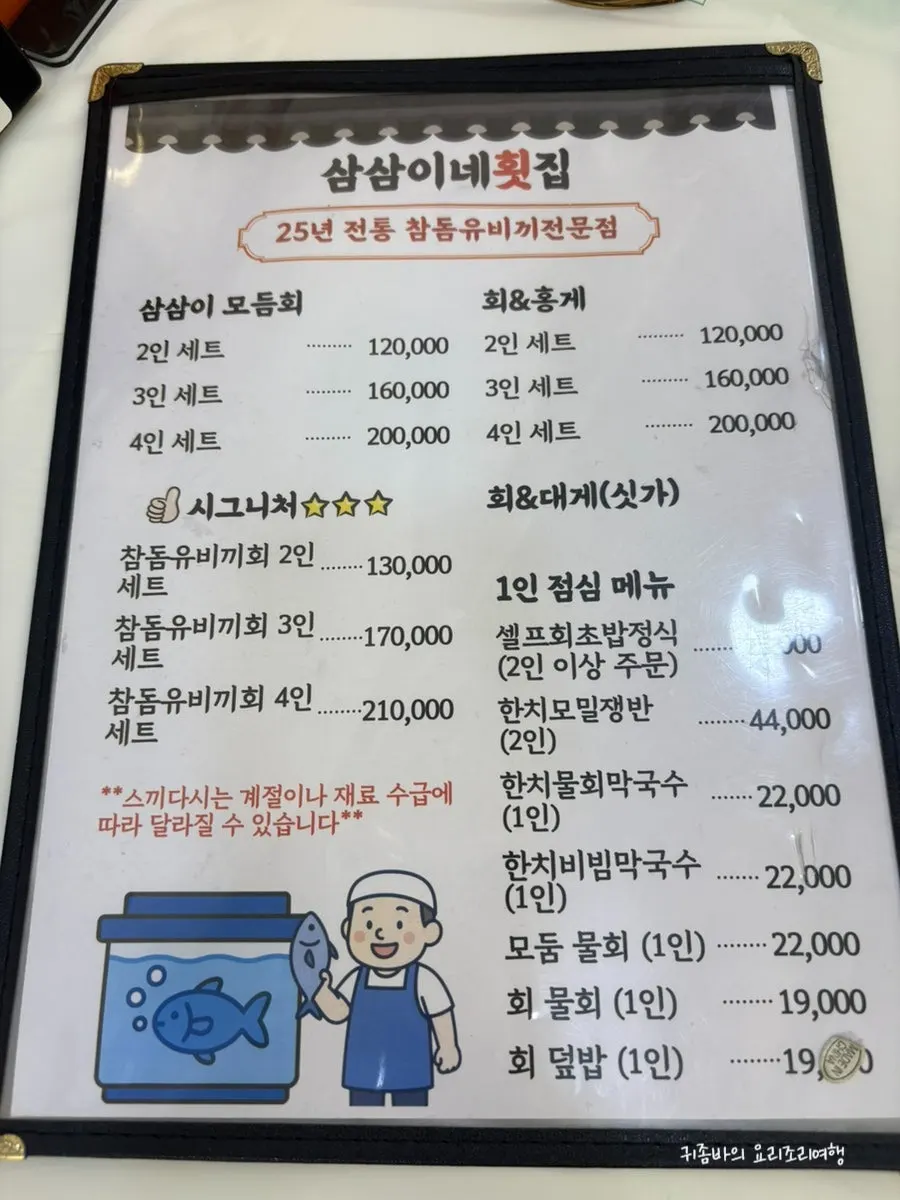 삼삼이네횟집
25년 전통 참돔유비끼전문점
삼삼이 모듬회
2인 세트 ········· 120,000
3인 세트 ········· 160,000
4인 세트 ········· 200,000
시그니처
참돔유비끼회 2인 ········ 130,000
세트
참돔유비끼회 3인 ········ 170,000
세트
참돔유비끼회 4인 ········ 210,000
세트
**스끼다시는 계절이나 재료 수급에
따라 달라질 수 있습니다**
회&홍게
2인 세트 ········· 120,000
3인 세트 ········· 160,000
4인 세트 ········· 200,000
회&대게(싯가)
1인 점심 메뉴
셀프회초밥정식
(2인 이상 주문)
한치모밀쟁반 ········ 44,000
(2인)
한치물회막국수 ······· 22,000
(1인)
한치비빔막국수 ······· 22,000
(1인)
모둠 물회 (1인) ········ 22,000
회 물회 (1인) ········ 19,000
회 덮밥 (1인) ········
MADE IN CHINA
귀좀바의 요리조리여행